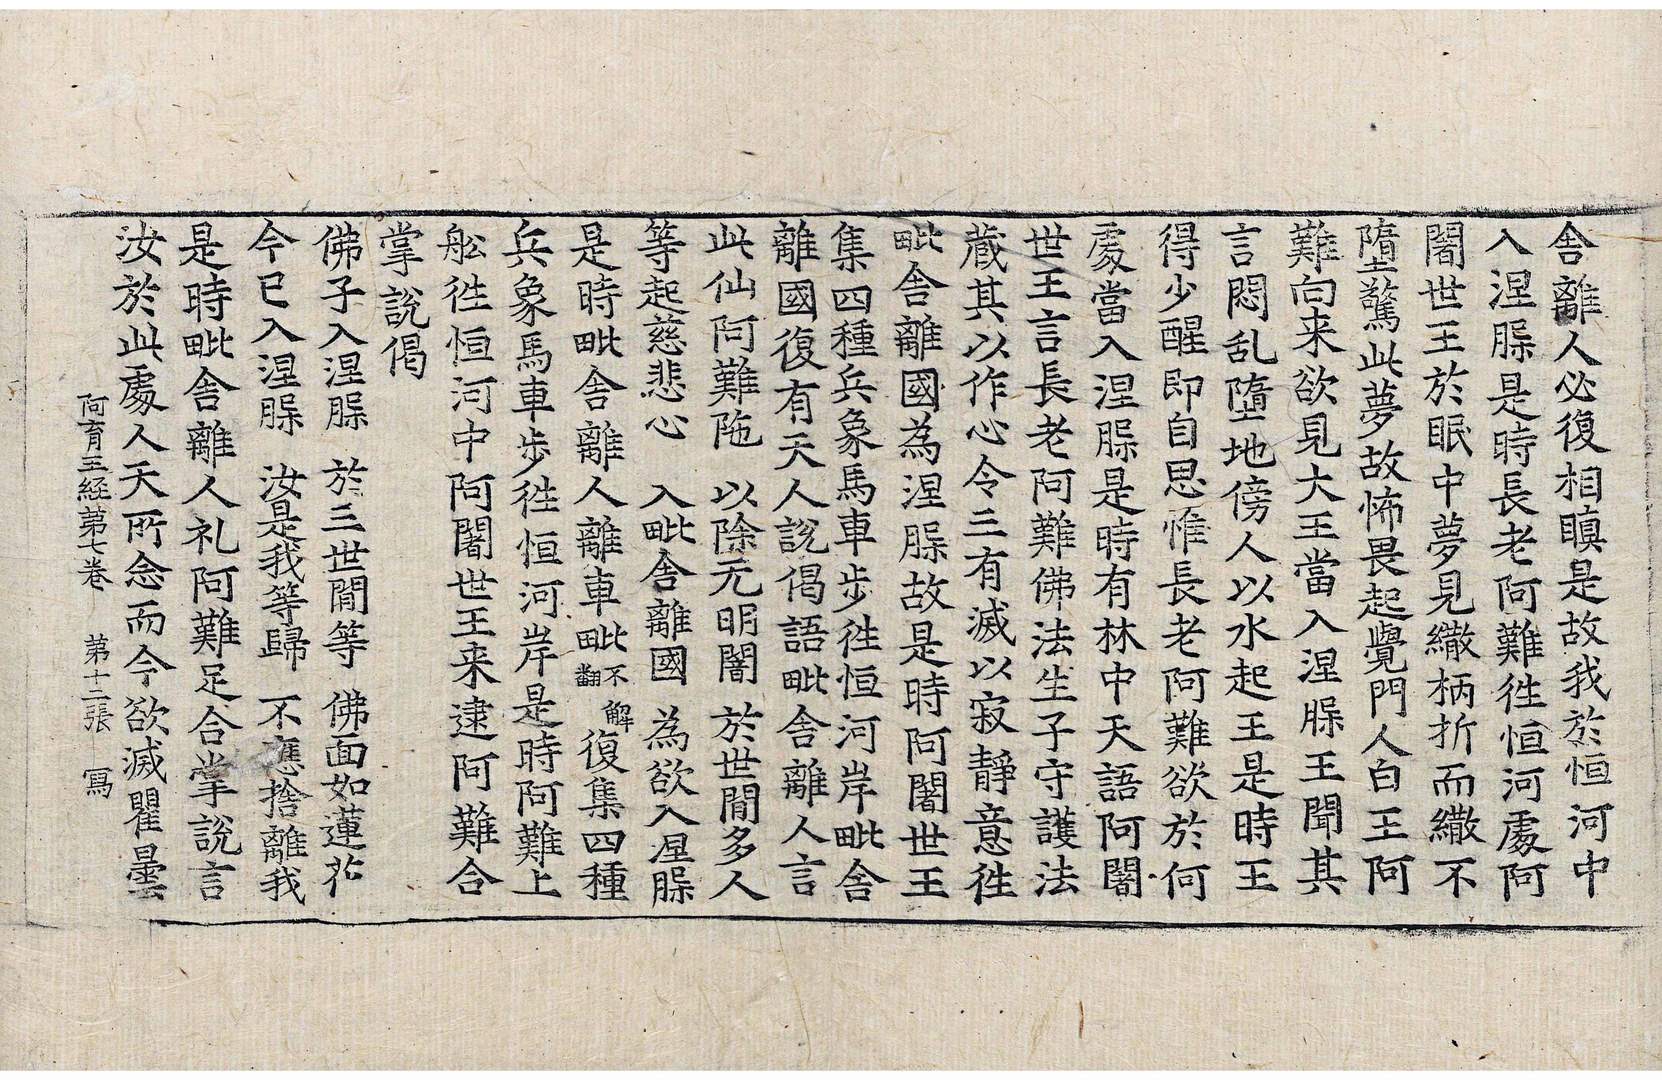 舎離人必復相瞋是故我於恒河中
入涅槃是時長老阿難徃恒河處阿
闍世王於眠中夢見繖柄折而繖不
墮驚此夢故怖畏起覺門人白王阿
難向来欲見大王當入涅槃王聞其
言悶乱墮地傍人以水起王是時王
得少醒即自思惟長老阿難欲於何
處當入涅槃是時有林中天語阿闍
世王言長老阿難佛法生子守護法
蔵其以作心令三有滅以寂靜意徃
毗舎離國為涅槃故是時阿闍世王
集四種兵象馬車歩徃恒河岸毗舎
離國復有天人說偈語毗舎離人言
此仙阿難陁 以除无明闇 於世間多人
等起慈悲心 入毗舎離國 為欲入涅槃
是時毗舎離人離車毗不解翻復集四種
兵象馬車歩徃恒河岸是時阿難上
舩徃恒河中阿闍世王来逮阿難合
掌說偈
佛子入涅槃 於三世間等 佛面如蓮花
今已入涅槃 汝是我等歸 不應捨離我
是時毗舎離人礼阿難足合掌說言
汝於此處人天所念而今欲滅瞿曇
阿育王經第七卷 第十二張 冩